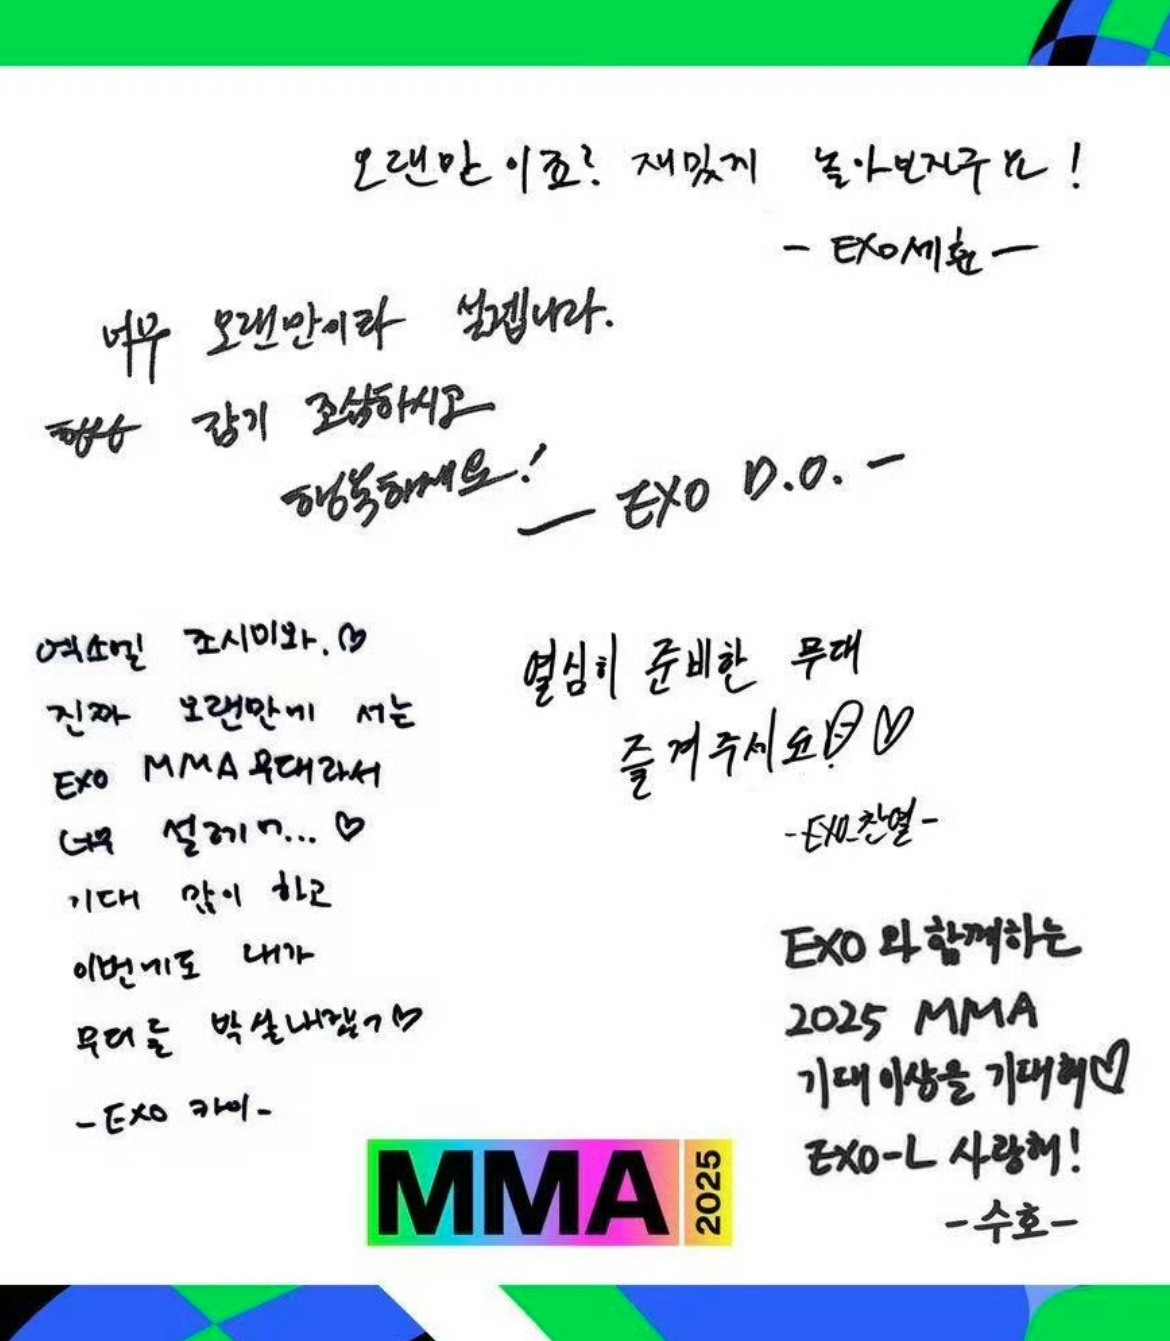 오랜만이죠? 재밌게 놀아보자구요!
- EXO 세훈 -
너무 오랜만이라 설렙니다.
항상 감기 조심하시고
행복하세요!
- EXO D.O. -
엑소엘 조시미와.♡
진짜 오랜만에 서는
EXO MMA 무대라서
너무 설레ㅋ...♡
기대 많이 하고
이번에도 내가
무대를 박살내겠ㅋ♡
- EXO 카이 -
열심히 준비한 무대
즐겨주세요!♡
- EXO 찬열 -
EXO와 함께하는
2025 MMA
기대 이상을 기대해♡
EXO-L 사랑해!
- 수호 -
MMA 2025